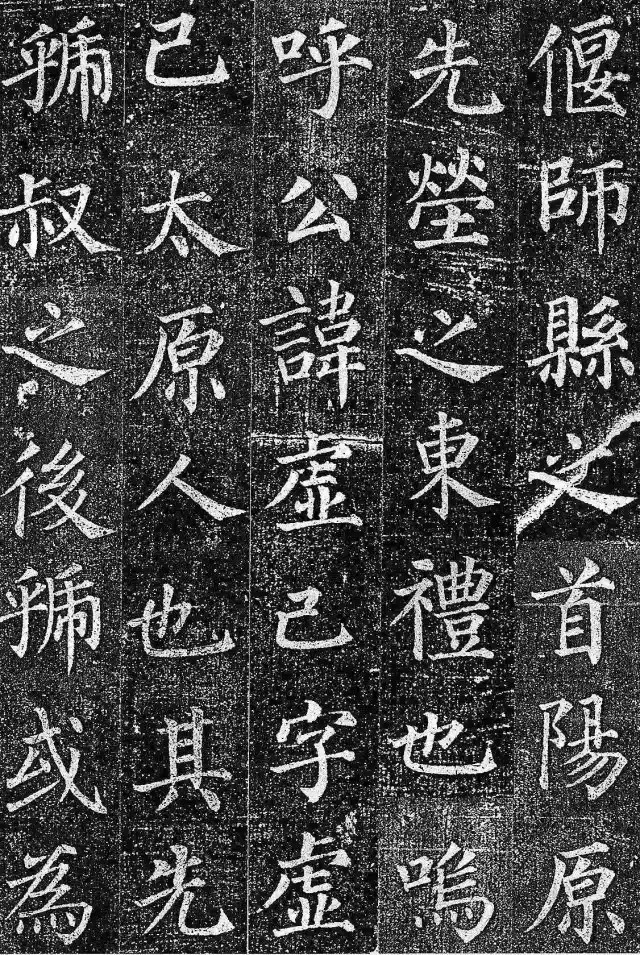 偃師縣之首陽原
先塋之東禮也嗚
呼公諱虛己字虛
己太原人也其先
虢叔之後虢或為